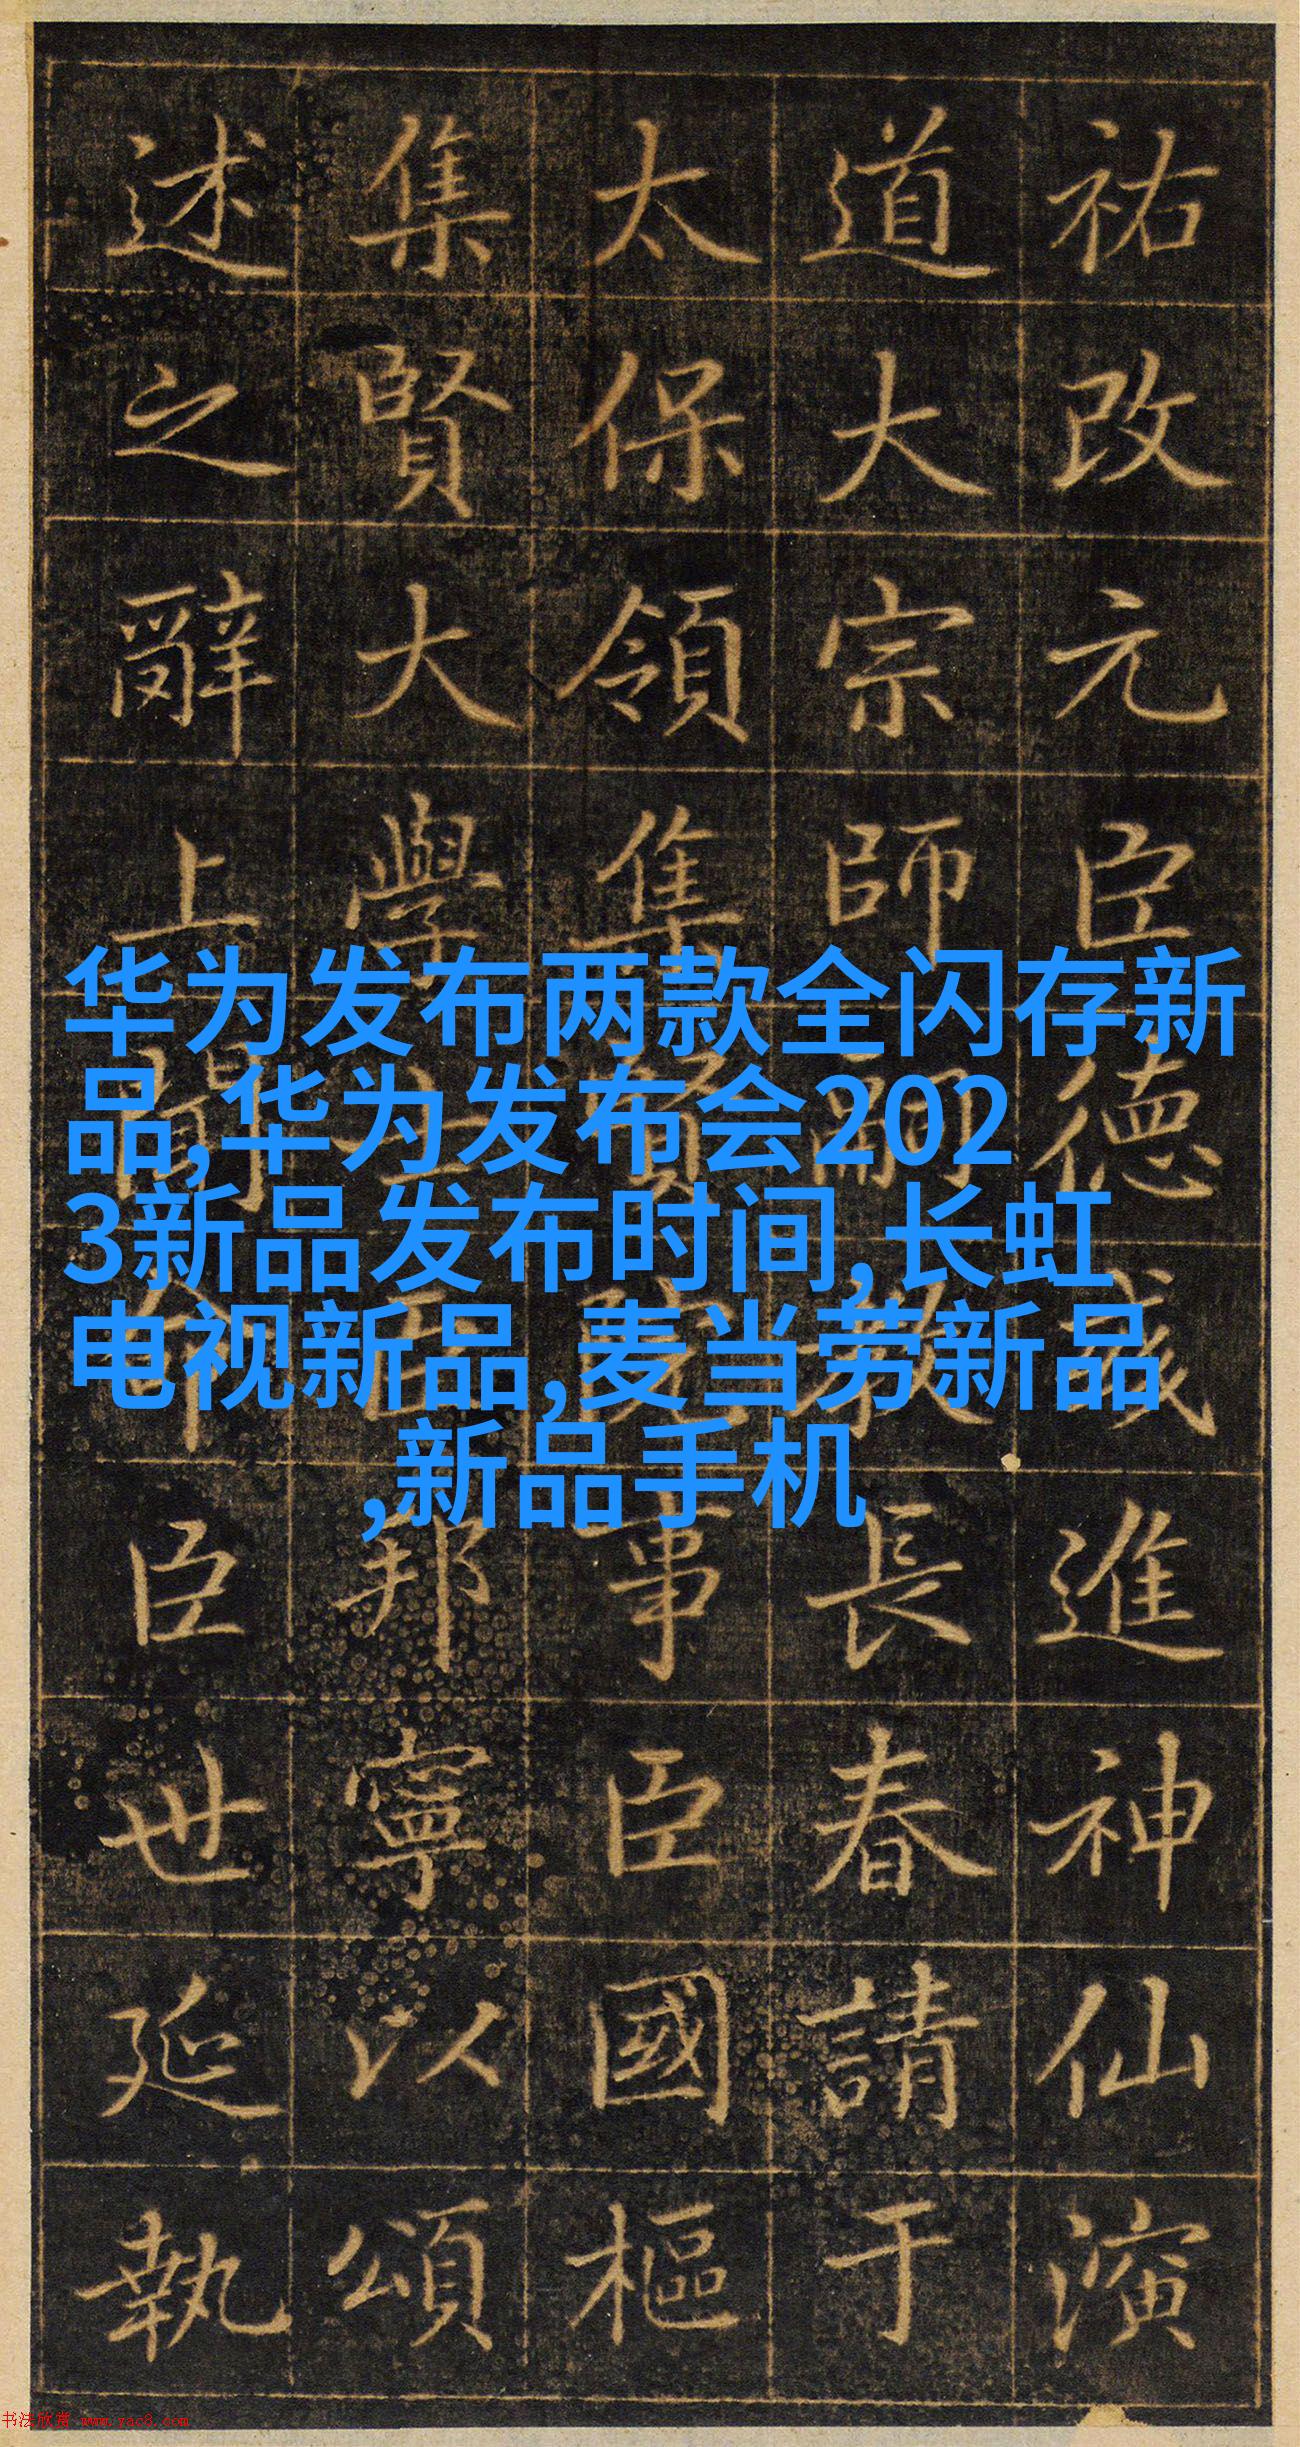 祐改元臣德進神仙演
道大宗師嗣教長春請于
太保領集賢院事臣國樞
集賢大學士臣邦寧以頌
述之辭上聞命臣世延執
华为发布两款全闪存新
品,华为发布会202
3新品发布时间,长虹
电视新品,麦当劳新品
,新品手机
书法欣赏 www.yac8.com